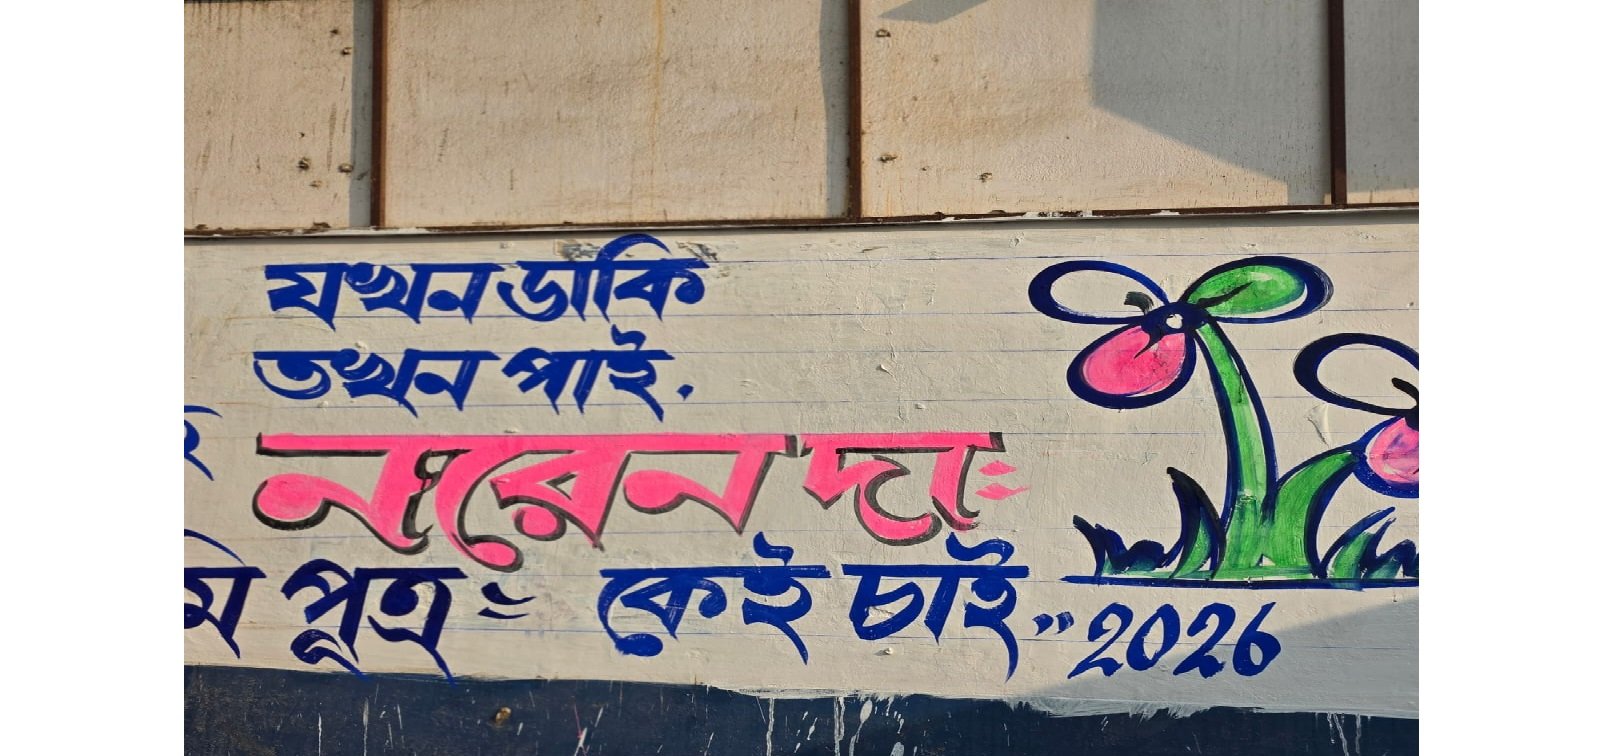 যখন ডাকি
তখন পাই.
নরেন দা:
মি পূত্র = কেই চাই,, 2026